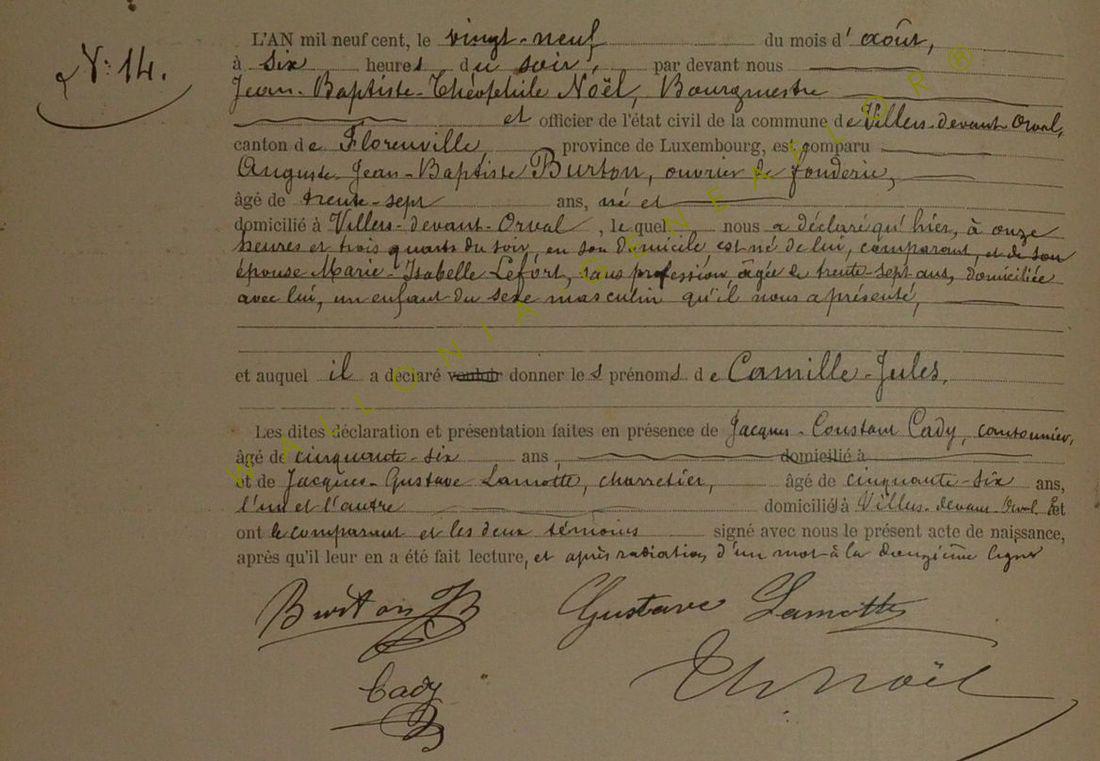 N° 14.
L'AN mil neuf cent, le vingt-neuf du mois d'août,
à six heures du soir, par devant nous
Jean-Baptiste-Théophile Noël, Bourgmestre
et officier de l'état civil de la commune de Villers-devant-Orval,
canton de Florenville province de Luxembourg, est comparu
Auguste-Jean-Baptiste Burton, ouvrier de fonderie,
âgé de trente-sept ans, né et
domicilié à Villers-devant-Orval, lequel nous a déclaré qu'hier, à onze
heures et trois quarts du soir, en son domicile est né de lui, comparant, et de son
épouse Marie-Isabelle Lefort, sans profession âgée de trente-sept ans, domiciliée
avec lui, un enfant du sexe masculin qu'il nous a présenté,
et auquel il a déclaré vouloir donner les prénoms de Camille-Jules.
Les dites déclaration et présentation faites en présence de Jacques-Constant Cady, cantonnier,
âgé de cinquante-six ans, domicilié à
et de Jacques-Gustave Lamotte, charretier, âgé de cinquante-six ans,
l'un et l'autre domicilié à Villers-devant-Orval Et
ont le comparant et les deux témoins signé avec nous le présent acte de naissance,
après qu'il leur en a été fait lecture, et après radiation d'un mot à la douzième ligne
Burton JB Gustave Lamotte
Cady
Th Noël
WALLONIA GENEALOR®